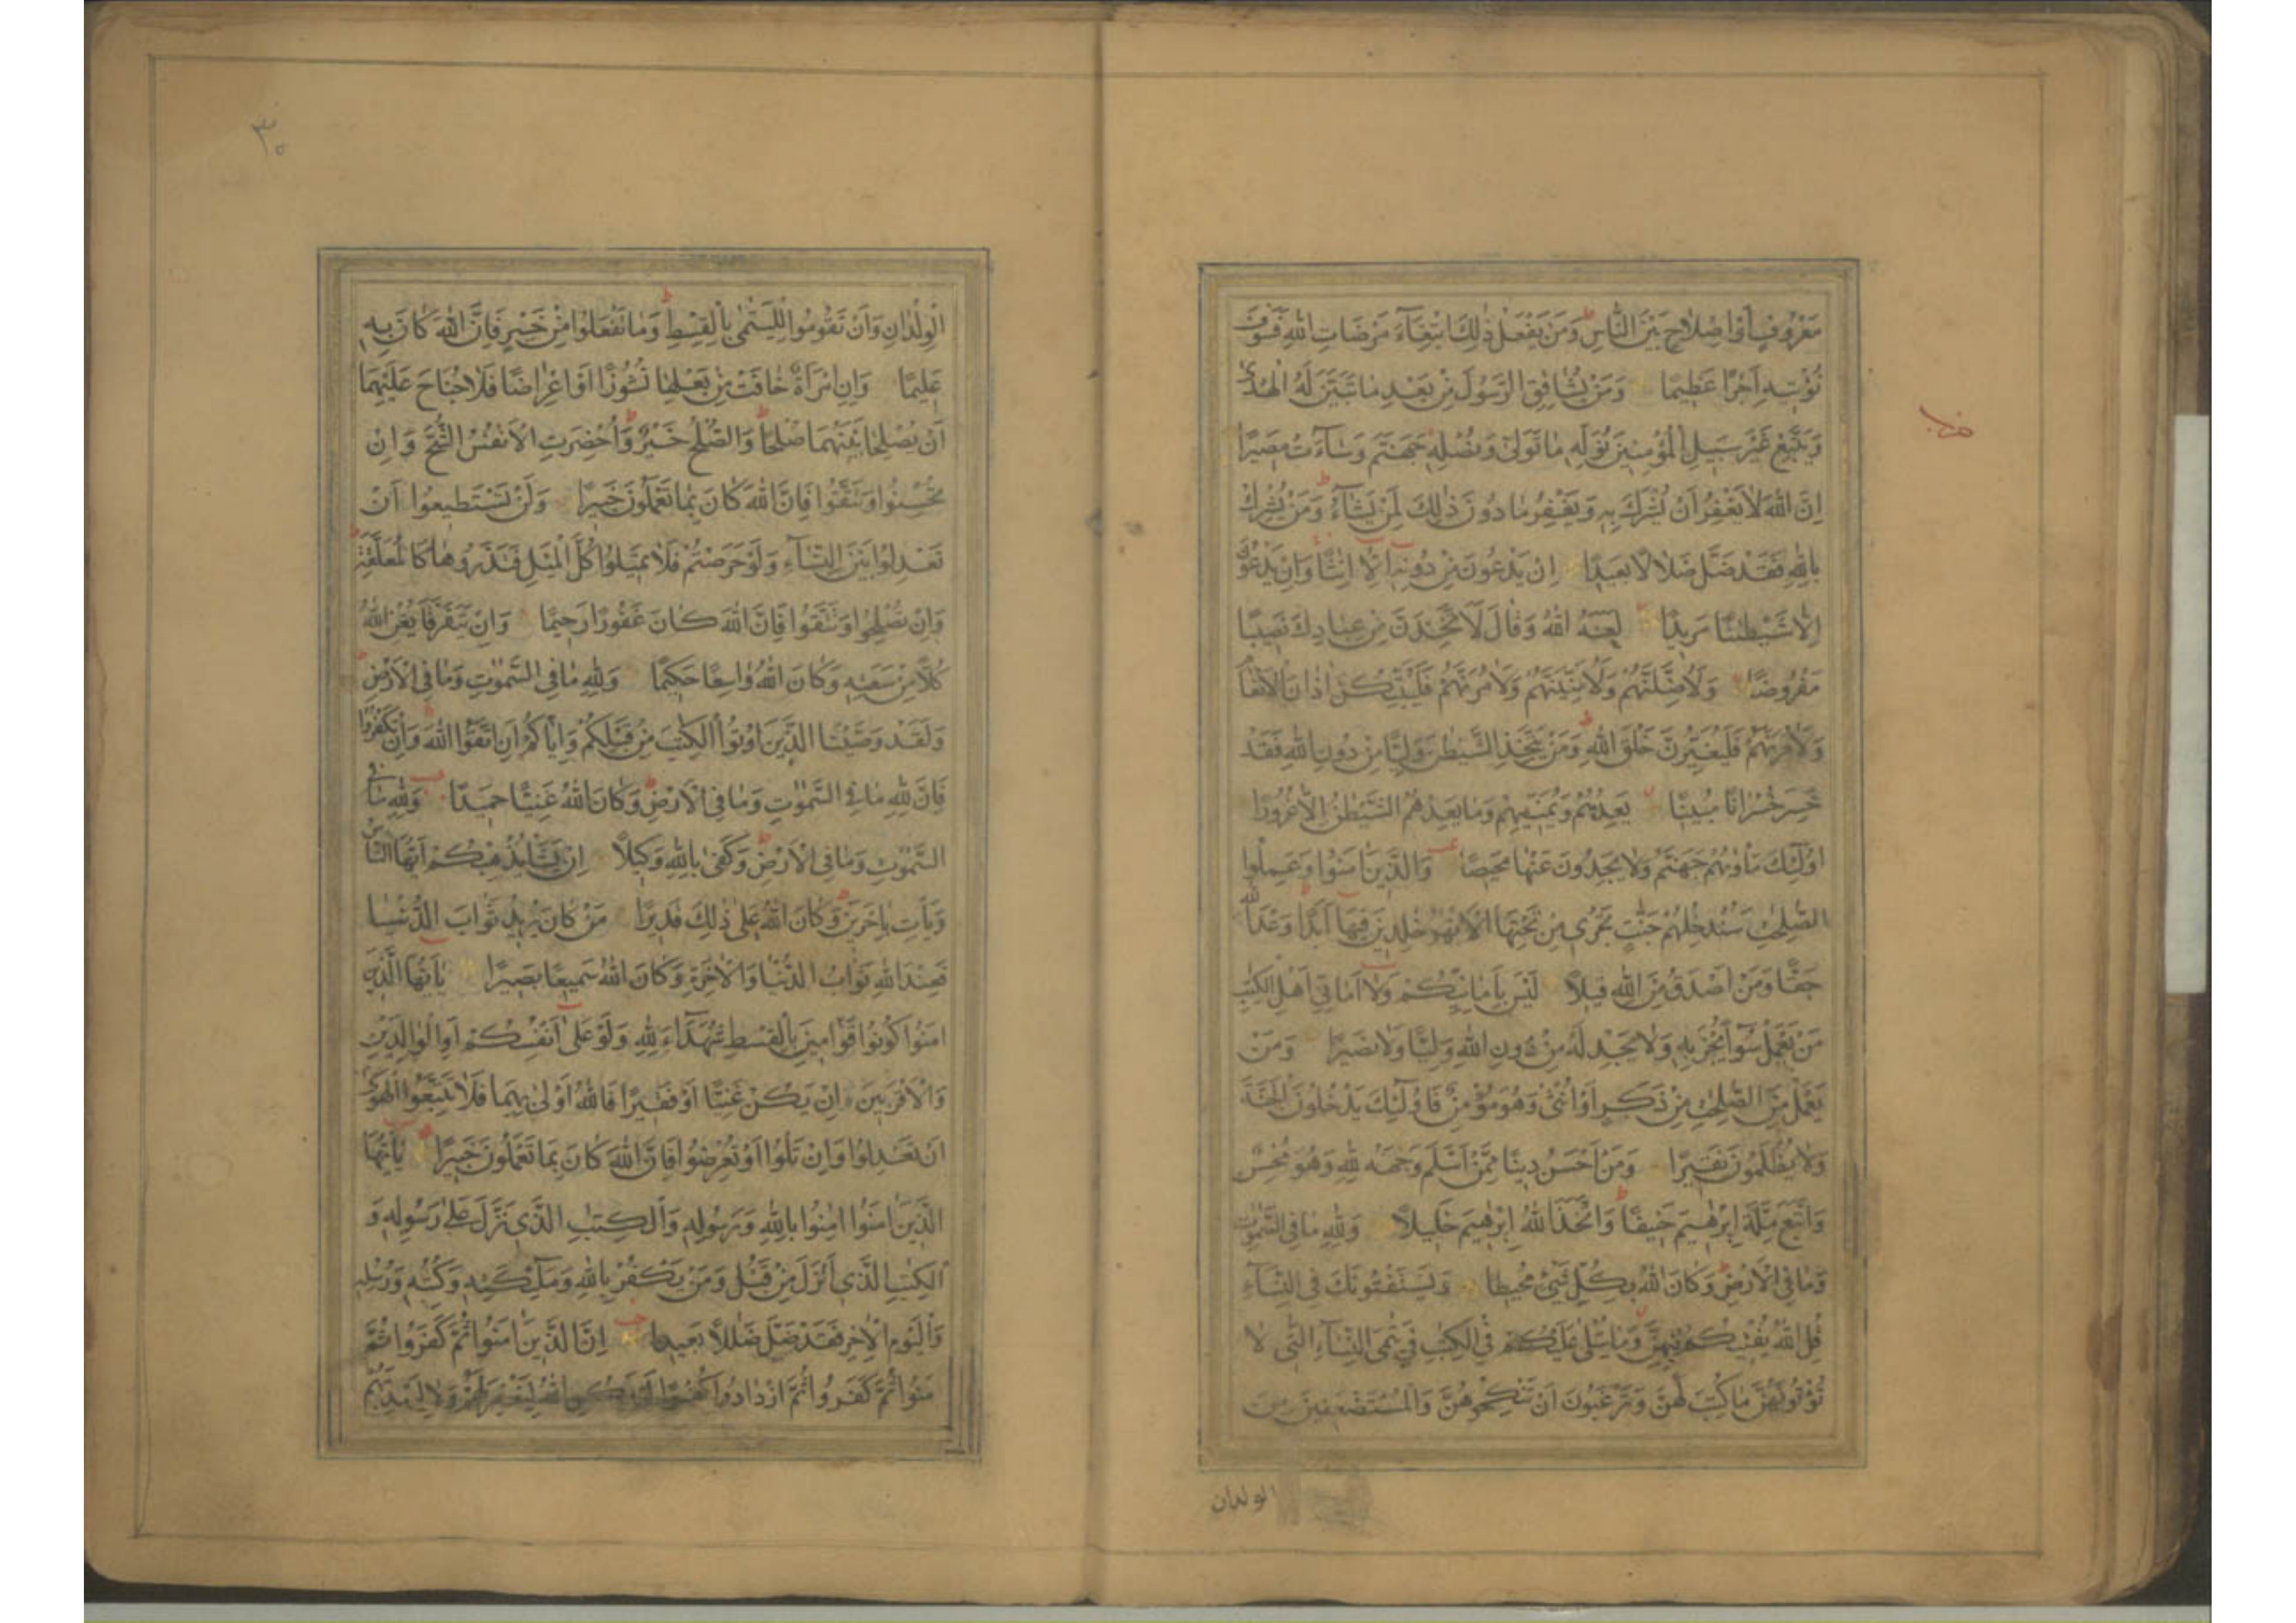 مَعْرُوفٍ اَوْ اِصْلَاحٍ بَيْنَ النَّاسِ وَمَنْ يَفْعَلْ ذٰلِكَ ابْتِغَآءَ مَرْضَاتِ اللّٰهِ فَسَوْفَ
نُؤْتِيهِ اَجْرًا عَظِيمًا وَمَنْ يُشَاقِقِ الرَّسُولَ مِنْ بَعْدِ مَا تَبَيَّنَ لَهُ الْهُدٰى
وَيَتَّبِعْ غَيْرَ سَبِيلِ الْمُؤْمِنِينَ نُوَلِّهِ مَا تَوَلّٰى وَنُصْلِهِ جَهَنَّمَ وَسَآءَتْ مَصِيرًا
اِنَّ اللّٰهَ لَا يَغْفِرُ اَنْ يُشْرَكَ بِهِ وَيَغْفِرُ مَا دُونَ ذٰلِكَ لِمَنْ يَشَآءُ وَمَنْ يُشْرِكْ
بِاللّٰهِ فَقَدْ ضَلَّ ضَلَالًا بَعِيدًا اِنْ يَدْعُونَ مِنْ دُونِهِ اِلَّا اِنَاثًا وَاِنْ يَدْعُونَ
اِلَّا شَيْطٰنًا مَرِيدًا لَعَنَهُ اللّٰهُ وَقَالَ لَاَتَّخِذَنَّ مِنْ عِبَادِكَ نَصِيبًا
مَفْرُوضًا وَلَاُضِلَّنَّهُمْ وَلَاُمَنِّيَنَّهُمْ وَلَاٰمُرَنَّهُمْ فَلَيُبَتِّكُنَّ اٰذَانَ الْاَنْعَامِ
وَلَاٰمُرَنَّهُمْ فَلَيُغَيِّرُنَّ خَلْقَ اللّٰهِ وَمَنْ يَتَّخِذِ الشَّيْطٰنَ وَلِيًّا مِنْ دُونِ اللّٰهِ فَقَدْ
خَسِرَ خُسْرَانًا مُبِينًا يَعِدُهُمْ وَيُمَنِّيهِمْ وَمَا يَعِدُهُمُ الشَّيْطٰنُ اِلَّا غُرُورًا
اُولٰٓئِكَ مَأْوٰيهُمْ جَهَنَّمُ وَلَا يَجِدُونَ عَنْهَا مَحِيصًا وَالَّذِينَ اٰمَنُوا وَعَمِلُوا
الصّٰلِحٰتِ سَنُدْخِلُهُمْ جَنّٰتٍ تَجْرِى مِنْ تَحْتِهَا الْاَنْهٰرُ خٰلِدِينَ فِيهَا اَبَدًا وَعْدَ اللّٰهِ
حَقًّا وَمَنْ اَصْدَقُ مِنَ اللّٰهِ قِيلًا لَيْسَ بِاَمَانِيِّكُمْ وَلَا اَمَانِىِّ اَهْلِ الْكِتٰبِ
مَنْ يَعْمَلْ سُوٓءًا يُجْزَ بِهِ وَلَا يَجِدْ لَهُ مِنْ دُونِ اللّٰهِ وَلِيًّا وَلَا نَصِيرًا وَمَنْ
يَعْمَلْ مِنَ الصّٰلِحٰتِ مِنْ ذَكَرٍ اَوْ اُنْثٰى وَهُوَ مُؤْمِنٌ فَاُولٰٓئِكَ يَدْخُلُونَ الْجَنَّةَ
وَلَا يُظْلَمُونَ نَقِيرًا وَمَنْ اَحْسَنُ دِينًا مِمَّنْ اَسْلَمَ وَجْهَهُ لِلّٰهِ وَهُوَ مُحْسِنٌ
وَاتَّبَعَ مِلَّةَ اِبْرٰهِيمَ حَنِيفًا وَاتَّخَذَ اللّٰهُ اِبْرٰهِيمَ خَلِيلًا وَلِلّٰهِ مَا فِى السَّمٰوٰتِ
وَمَا فِى الْاَرْضِ وَكَانَ اللّٰهُ بِكُلِّ شَىْءٍ مُحِيطًا وَيَسْتَفْتُونَكَ فِى النِّسَآءِ
قُلِ اللّٰهُ يُفْتِيكُمْ فِيهِنَّ وَمَا يُتْلٰى عَلَيْكُمْ فِى الْكِتٰبِ فِى يَتٰمَى النِّسَآءِ الّٰتِى لَا
تُؤْتُونَهُنَّ مَا كُتِبَ لَهُنَّ وَتَرْغَبُونَ اَنْ تَنْكِحُوهُنَّ وَالْمُسْتَضْعَفِينَ مِنَ
الولدان
٣٠
الْوِلْدَانِ وَاَنْ تَقُومُوا لِلْيَتٰمٰى بِالْقِسْطِ وَمَا تَفْعَلُوا مِنْ خَيْرٍ فَاِنَّ اللّٰهَ كَانَ بِهِ
عَلِيمًا وَاِنِ امْرَاَةٌ خَافَتْ مِنْ بَعْلِهَا نُشُوزًا اَوْ اِعْرَاضًا فَلَا جُنَاحَ عَلَيْهِمَا
اَنْ يُصْلِحَا بَيْنَهُمَا صُلْحًا وَالصُّلْحُ خَيْرٌ وَاُحْضِرَتِ الْاَنْفُسُ الشُّحَّ وَاِنْ
تُحْسِنُوا وَتَتَّقُوا فَاِنَّ اللّٰهَ كَانَ بِمَا تَعْمَلُونَ خَبِيرًا وَلَنْ تَسْتَطِيعُوا اَنْ
تَعْدِلُوا بَيْنَ النِّسَآءِ وَلَوْ حَرَصْتُمْ فَلَا تَمِيلُوا كُلَّ الْمَيْلِ فَتَذَرُوهَا كَالْمُعَلَّقَةِ
وَاِنْ تُصْلِحُوا وَتَتَّقُوا فَاِنَّ اللّٰهَ كَانَ غَفُورًا رَحِيمًا وَاِنْ يَتَفَرَّقَا يُغْنِ اللّٰهُ
كُلًّا مِنْ سَعَتِهِ وَكَانَ اللّٰهُ وَاسِعًا حَكِيمًا وَلِلّٰهِ مَا فِى السَّمٰوٰتِ وَمَا فِى الْاَرْضِ
وَلَقَدْ وَصَّيْنَا الَّذِينَ اُوتُوا الْكِتٰبَ مِنْ قَبْلِكُمْ وَاِيَّاكُمْ اَنِ اتَّقُوا اللّٰهَ وَاِنْ تَكْفُرُوا
فَاِنَّ لِلّٰهِ مَا فِى السَّمٰوٰتِ وَمَا فِى الْاَرْضِ وَكَانَ اللّٰهُ غَنِيًّا حَمِيدًا وَلِلّٰهِ مَا فِى
السَّمٰوٰتِ وَمَا فِى الْاَرْضِ وَكَفٰى بِاللّٰهِ وَكِيلًا اِنْ يَشَأْ يُذْهِبْكُمْ اَيُّهَا النَّاسُ
وَيَأْتِ بِاٰخَرِينَ وَكَانَ اللّٰهُ عَلٰى ذٰلِكَ قَدِيرًا مَنْ كَانَ يُرِيدُ ثَوَابَ الدُّنْيَا
فَعِنْدَ اللّٰهِ ثَوَابُ الدُّنْيَا وَالْاٰخِرَةِ وَكَانَ اللّٰهُ سَمِيعًا بَصِيرًا يَاۤاَيُّهَا الَّذِينَ
اٰمَنُوا كُونُوا قَوَّامِينَ بِالْقِسْطِ شُهَدَآءَ لِلّٰهِ وَلَوْ عَلٰى اَنْفُسِكُمْ اَوِ الْوَالِدَيْنِ
وَالْاَقْرَبِينَ اِنْ يَكُنْ غَنِيًّا اَوْ فَقِيرًا فَاللّٰهُ اَوْلٰى بِهِمَا فَلَا تَتَّبِعُوا الْهَوٰى
اَنْ تَعْدِلُوا وَاِنْ تَلْوُا اَوْ تُعْرِضُوا فَاِنَّ اللّٰهَ كَانَ بِمَا تَعْمَلُونَ خَبِيرًا يَاۤاَيُّهَا
الَّذِينَ اٰمَنُوا اٰمِنُوا بِاللّٰهِ وَرَسُولِهِ وَالْكِتٰبِ الَّذِى نَزَّلَ عَلٰى رَسُولِهِ وَ
الْكِتٰبِ الَّذِى اَنْزَلَ مِنْ قَبْلُ وَمَنْ يَكْفُرْ بِاللّٰهِ وَمَلٰٓئِكَتِهِ وَكُتُبِهِ وَرُسُلِهِ
وَالْيَوْمِ الْاٰخِرِ فَقَدْ ضَلَّ ضَلٰلًا بَعِيدًا اِنَّ الَّذِينَ اٰمَنُوا ثُمَّ كَفَرُوا ثُمَّ
اٰمَنُوا ثُمَّ كَفَرُوا ثُمَّ ازْدَادُوا كُفْرًا لَمْ يَكُنِ اللّٰهُ لِيَغْفِرَ لَهُمْ وَلَا لِيَهْدِيَهُمْ